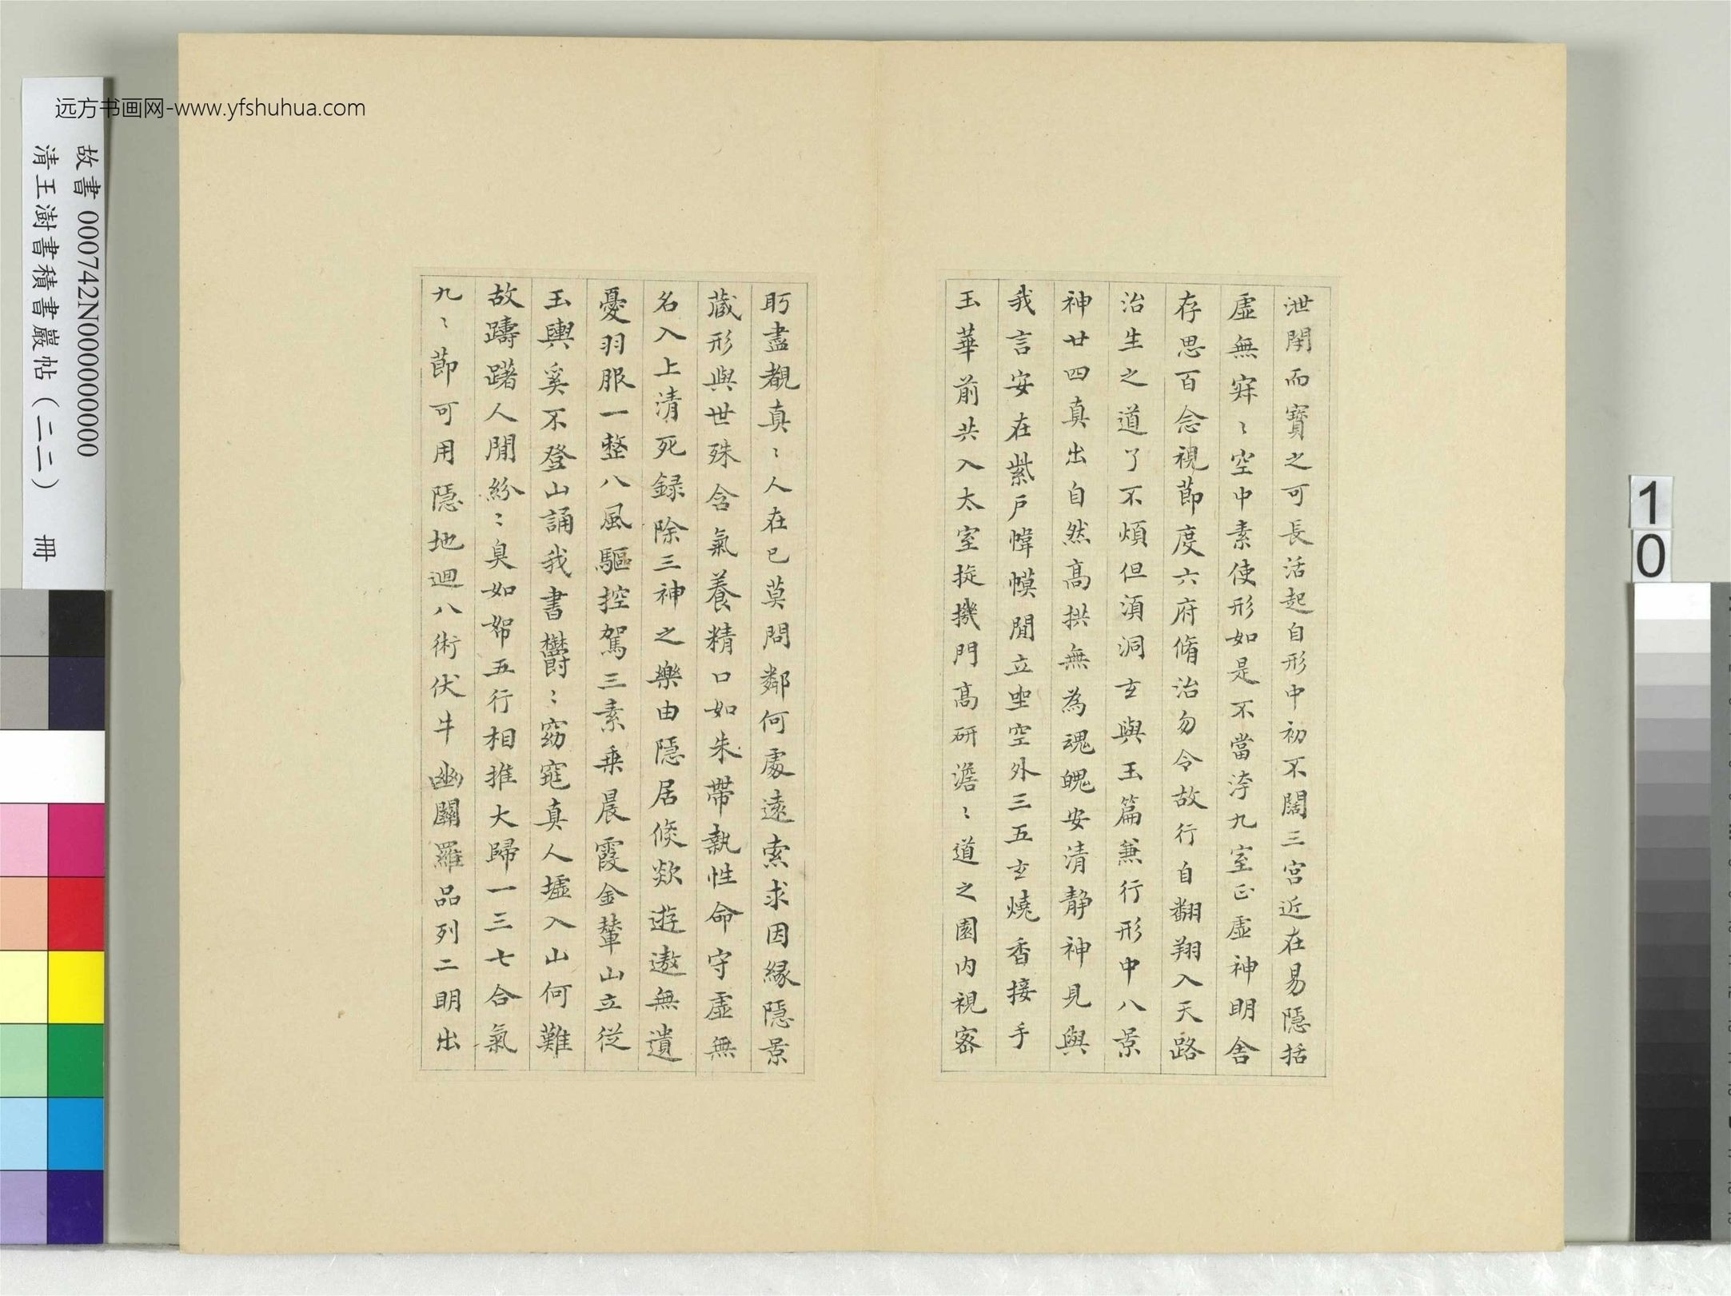 远方书画网-www.yfshuhua.com
故書 000742N000000000
清王澍書積書巖帖（二二） 冊
10
泄閇而寶之可長活起自形中初不闊三宮近在易隱括
虛無寂〻空中素使形如是不當汚九室正虛神明舍
存思百念視節度六府脩治勿令故行自翱翔入天路
治生之道了不煩但湏洞玄與玉篇兼行形中八景
神廿四真出自然高拱無為魂魄安清静神見與
我言安在紫户幃幙閒立坐空外三五玄燒香接手
玉華前共入太室璇璣門高研澹〻道之園内視密
盱盡覩真〻人在已莫問鄰何處遠索求因緣隱景
蔵形與世殊含氣養精口如朱帶執性命守虛無
名入上清死録除三神之樂由隱居倏欻遊遨無遺
憂羽服一整八風驅控駕三素乗晨霞金輦山立従
玉輿奚不登山誦我書欝〻窈窕真人墟入山何難
故躊躇人閒紛〻臭如帤五行相推大歸一三七合氣
九〻節可用隱地迴八術伏牛幽闕羅品列二明出